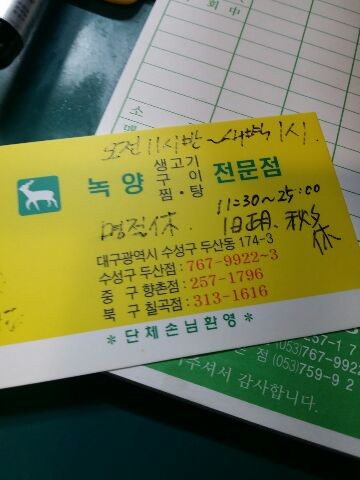 회 중
소
오전 11시반 ~ 새벽 1시
녹양 생고기 구이 찜·탕 전문점
11:30~25:00
명절休 旧正月. 秋夕 休
대구광역시 수성구 두산동 174-3
수성구 두산점 : 767-9922~3
중 구 향촌점 : 257-1796
북 구 칠곡점 : 313-1616
* 단체손님환영 *
257-17
(053)767-992
점 (053)759-92
주셔서 감사합니다.